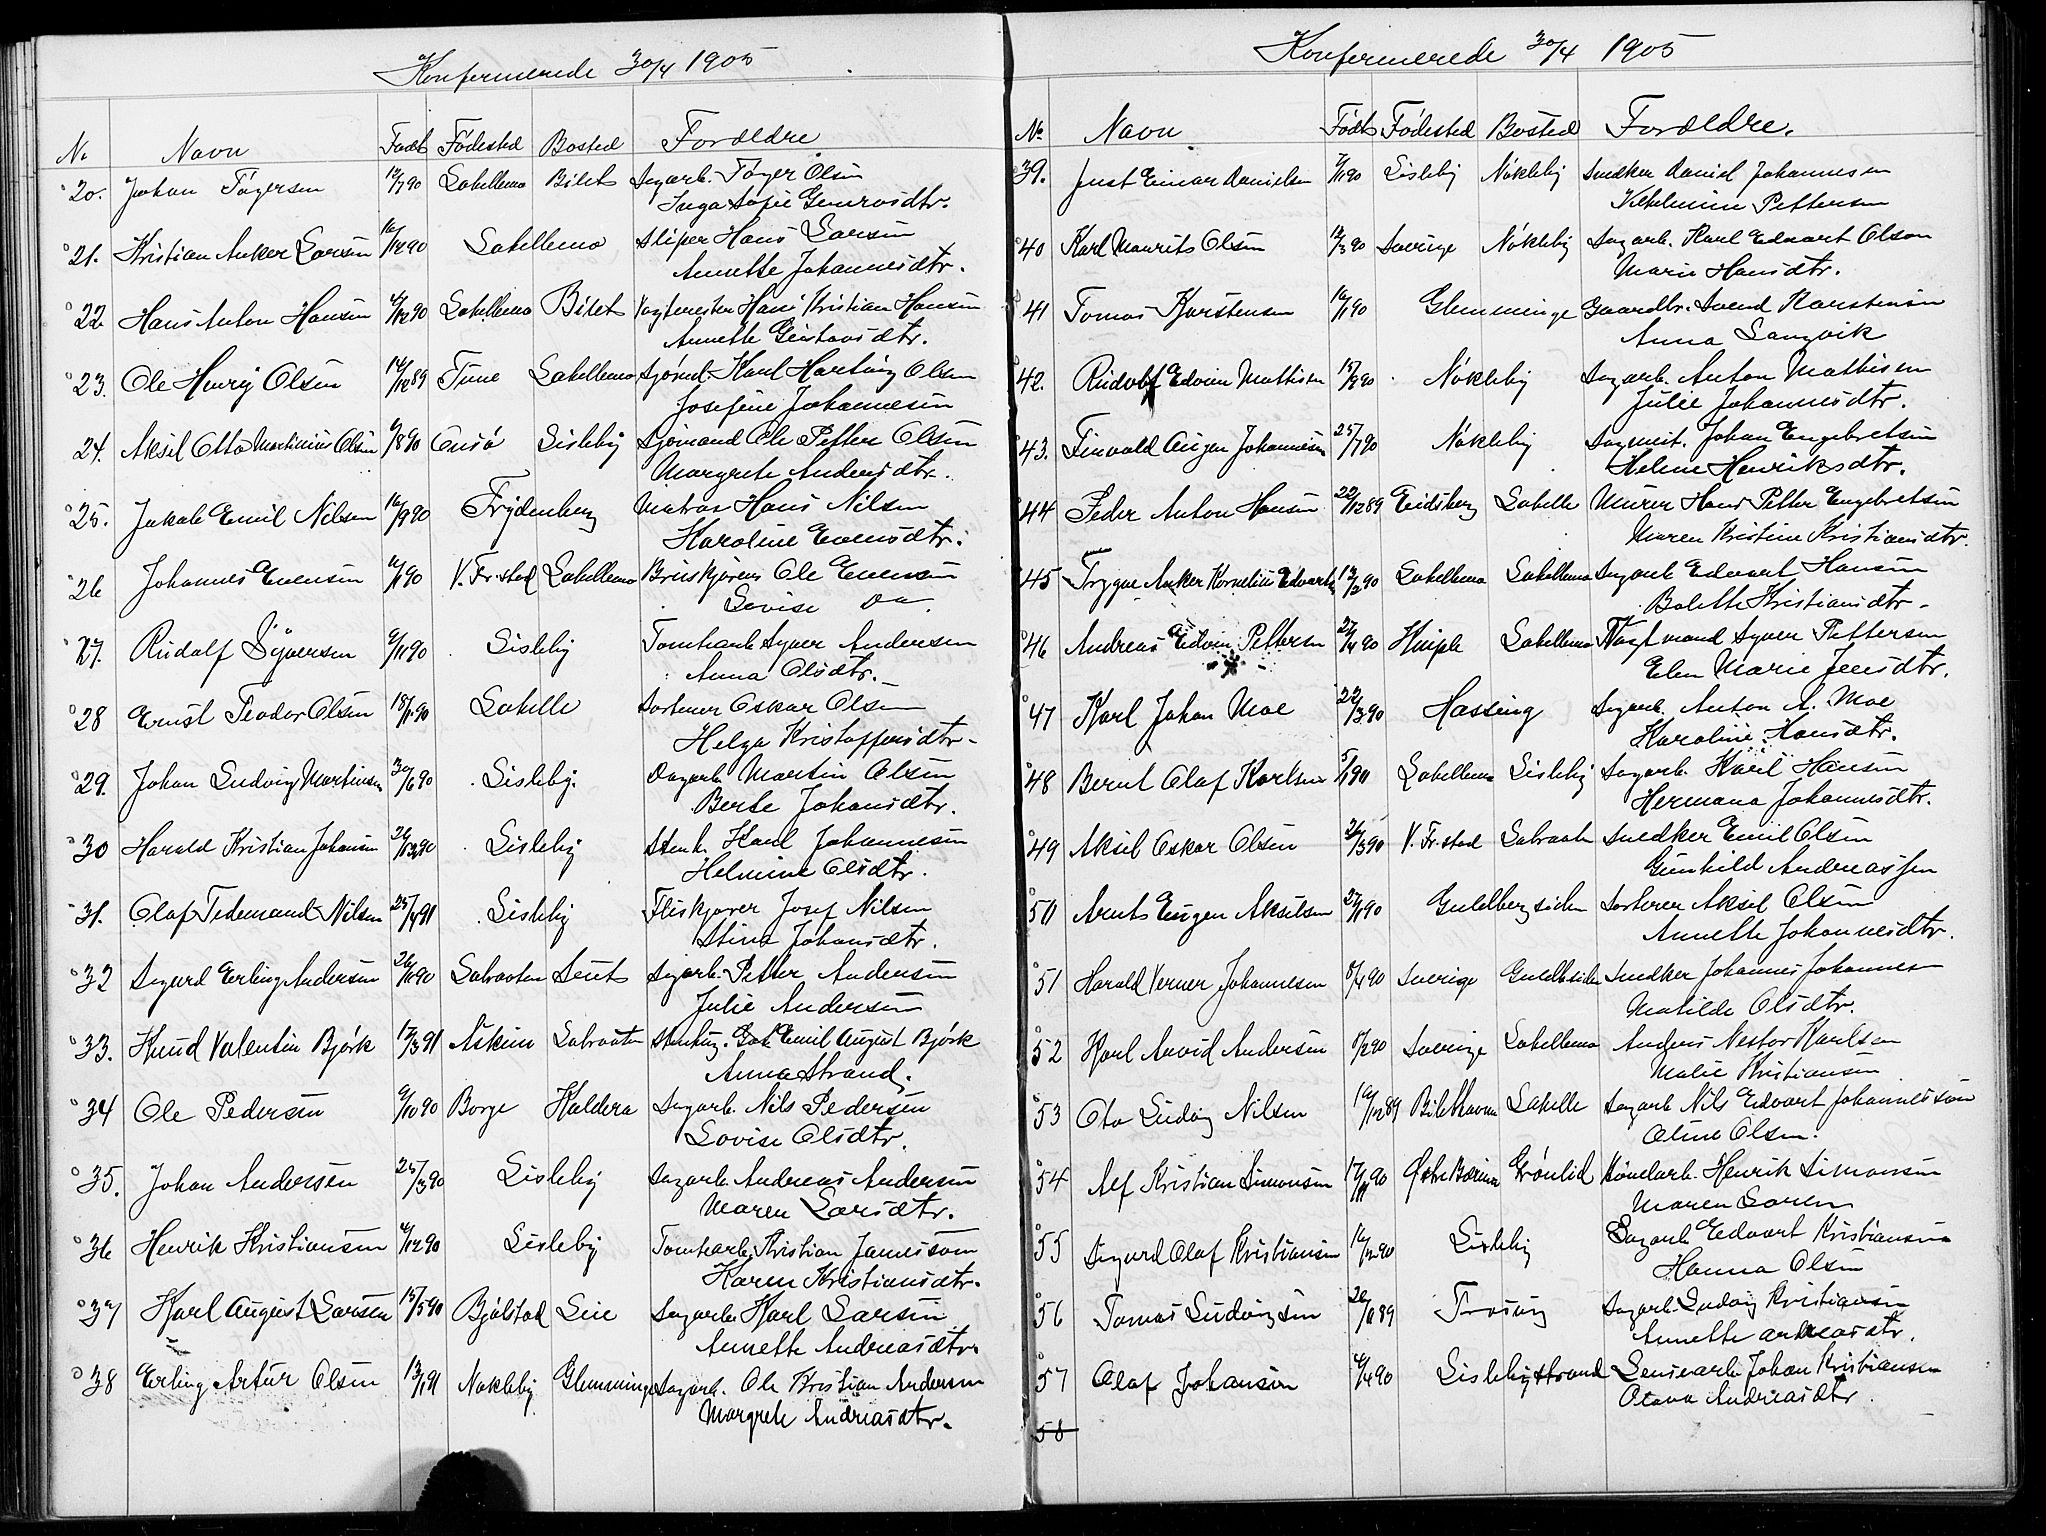 Konfermerede 30/4 1905
N. Navn Født Fødested Bosted Forældre
20. Johan Tøgersen 12/7 90 Labellemo Bilet Dagarb. Tøger Olsen
Inga Sofie Gunrosdtr.
21. Kristian Anker Larsen 12 90 Labellemo Sliper Hans Larsen
Annette Johannesdtr.
22 Hans Anton Hansen 12 90 Labellemo Bilet Vagtmester Hans Kristian Hansen
Annette Gustavsdtr.
23. Ole Henrij Olsen 14/12 89 Tune Labellemo Sjømd. Karl Hartvig Olsen
Josefine Johannesen
24. Aksel Otto Martinius Olsen 8 90 Onsø Lisleby Sjømand Ole Petter Olsen
Margrete Andersdtr.
25. Jakob Emil Nilsen 9 90 Frydenberg Matros Hans Nilsen
Karoline Evensdtr.
26 Johannes Evensen 1 90 V. Fr.stad Labellemo Ole Evensen
Lovise Do.
27. Rudolf Syversen 11 90 Lisleby Tomtearb Syver Andersen
Anna Olsdtr.
28 Ernst Teodor Olsen 18/1 90 Labelle Sorterer Oskar Olsen
Helga Kristoffersdtr.
29. Johan Ludvig Martinsen 30/6 90 Lisleby. Dagarb Martin Olsen
Berte Johansdtr.
30 Harald Kristian Johansen 12 90 Lisleby Stenh. Karl Johannesen
Helmine Olsdtr.
31. Olaf Tidemand Nilsen 25/4 91 Lisleby Fliskjører Josef Nilsen
Stina Johansdtr.
32 Sigurd Erling Andersen 26/11 90 Labraaten Seut Dagarb. Petter Andersen
Julie Andersen
33. Knud Valentin Bjørk 17/3 91 Askim Labraaten Stenhug. Emil August Bjørk
Anna Strand.
34 Ole Pedersen 10 90 Borge Kaldera Dagarb. Nils Pedersen
Lovise Olsdtr.
35. Johan Andersen 25/3 90 Lisleby Dagarb Andreas Andersen
Maren Larsdtr.
36 Henrik Kristiansen 12 90 Lisleby Tomtearb. Kristian Janesson
Karen Kristiansdtr.
37 Karl August Larsen 15/5 90 Bjølstad Leie Dagarb. Karl Larsen
Annette Andreasdtr.
38 Erling Artur Olsen 13/1 91 Nøkleby Glemminge Dagarb. Ole Kristian Andersen
Margrete Andreasdtr.
Konfermerede 30/4 1905
No Navn Født Fødested Bosted Forældre.
39. Just Einar Danielsen 7/11 90 Lisleby Nøkleby Snedker Daniel Johannesen
Vilhelmine Pettersen
40 Karl Maurits Olsen 12/3 90 Sverige Nøkleby Dagarb. Karl Edvart Olson
Marie Hansdtr.
41 Tomas Karstensen 90 Glemminge Gaardbr. Svend Karstensen
Anna Langvik
42. Rudolf Edvin Mathisen 15/9 90 Nøkleby Dagarb. Anton Mathisen
Julie Johannesdtr.
43. Finvald Augen Johannesen 25/7 90 Nøkleby Johan Engebretsen
Helene Henriksdtr.
44 Peder Anton Hansen 22/12 89 Eidsberg Labelle Murer Hans Petter Engebretsen
Maren Kristine Kristiansdtr.
45 Trygve Anker Kornelius Edvarts 13/2 90 Labellemo Labellemo Dagarb Edvart Hansen
Bolette Kristiansdtr.
46 Andreas Edvin Pettersen 27/4 90 Huiple Labellemo Vagtmand Syver Pettersen
Elen Marie Jensdtr.
47 Karl Johan Moe 22/3 90 Hassing Dagarb. Anton A. Moe
Karoline Hansdtr.
48 Bernt Olaf Karlsen 5/1 90 Labellemo Lisleby Dagarb. Karl Hansen
Hermana Johannesdtr.
49 Aksel Oskar Olsen 3 90 V. Fr.stad Labraaten Snedker Emil Olsen
Gunhild Andreassen
50 Arnts Eugen Akselsen 27/11 90 Guldbergsiden Sorterer Aksel Olsen
Annette Johannesdtr.
51 Harald Verner Johannesen 8/4 90 Sverige Guldb.siden Snedker Johannes Johannesen
Matilde Olsdtr.
52 Karl Arvid Andersen 8/2 90 Sverige Labellemo Anders Nestor Karlsen
Malie Kristiansen
53 Oto Ludvig Nilsen 12 89 Labelle Dagarb Nils Edvart Johannesson
Oline Olsen.
54 Alf Kristian Simonsen 17/11 90 Grønlid Henrik Simonsen
Maren Larsen
55 Sigurd Olaf Kristiansen 90 Lisleby Dagarb Edvart Kristiansen
Hanna Olsen
56 Tomas Ludvigsen 89 Trosvig Dagarb. Ludvig Kristiansen
Annette Andreasdtr.
57 Olaf Johanson 4 90 Lislebystrand Lensearb. Johan Kristiansen
Otava Andreasdtr.
58